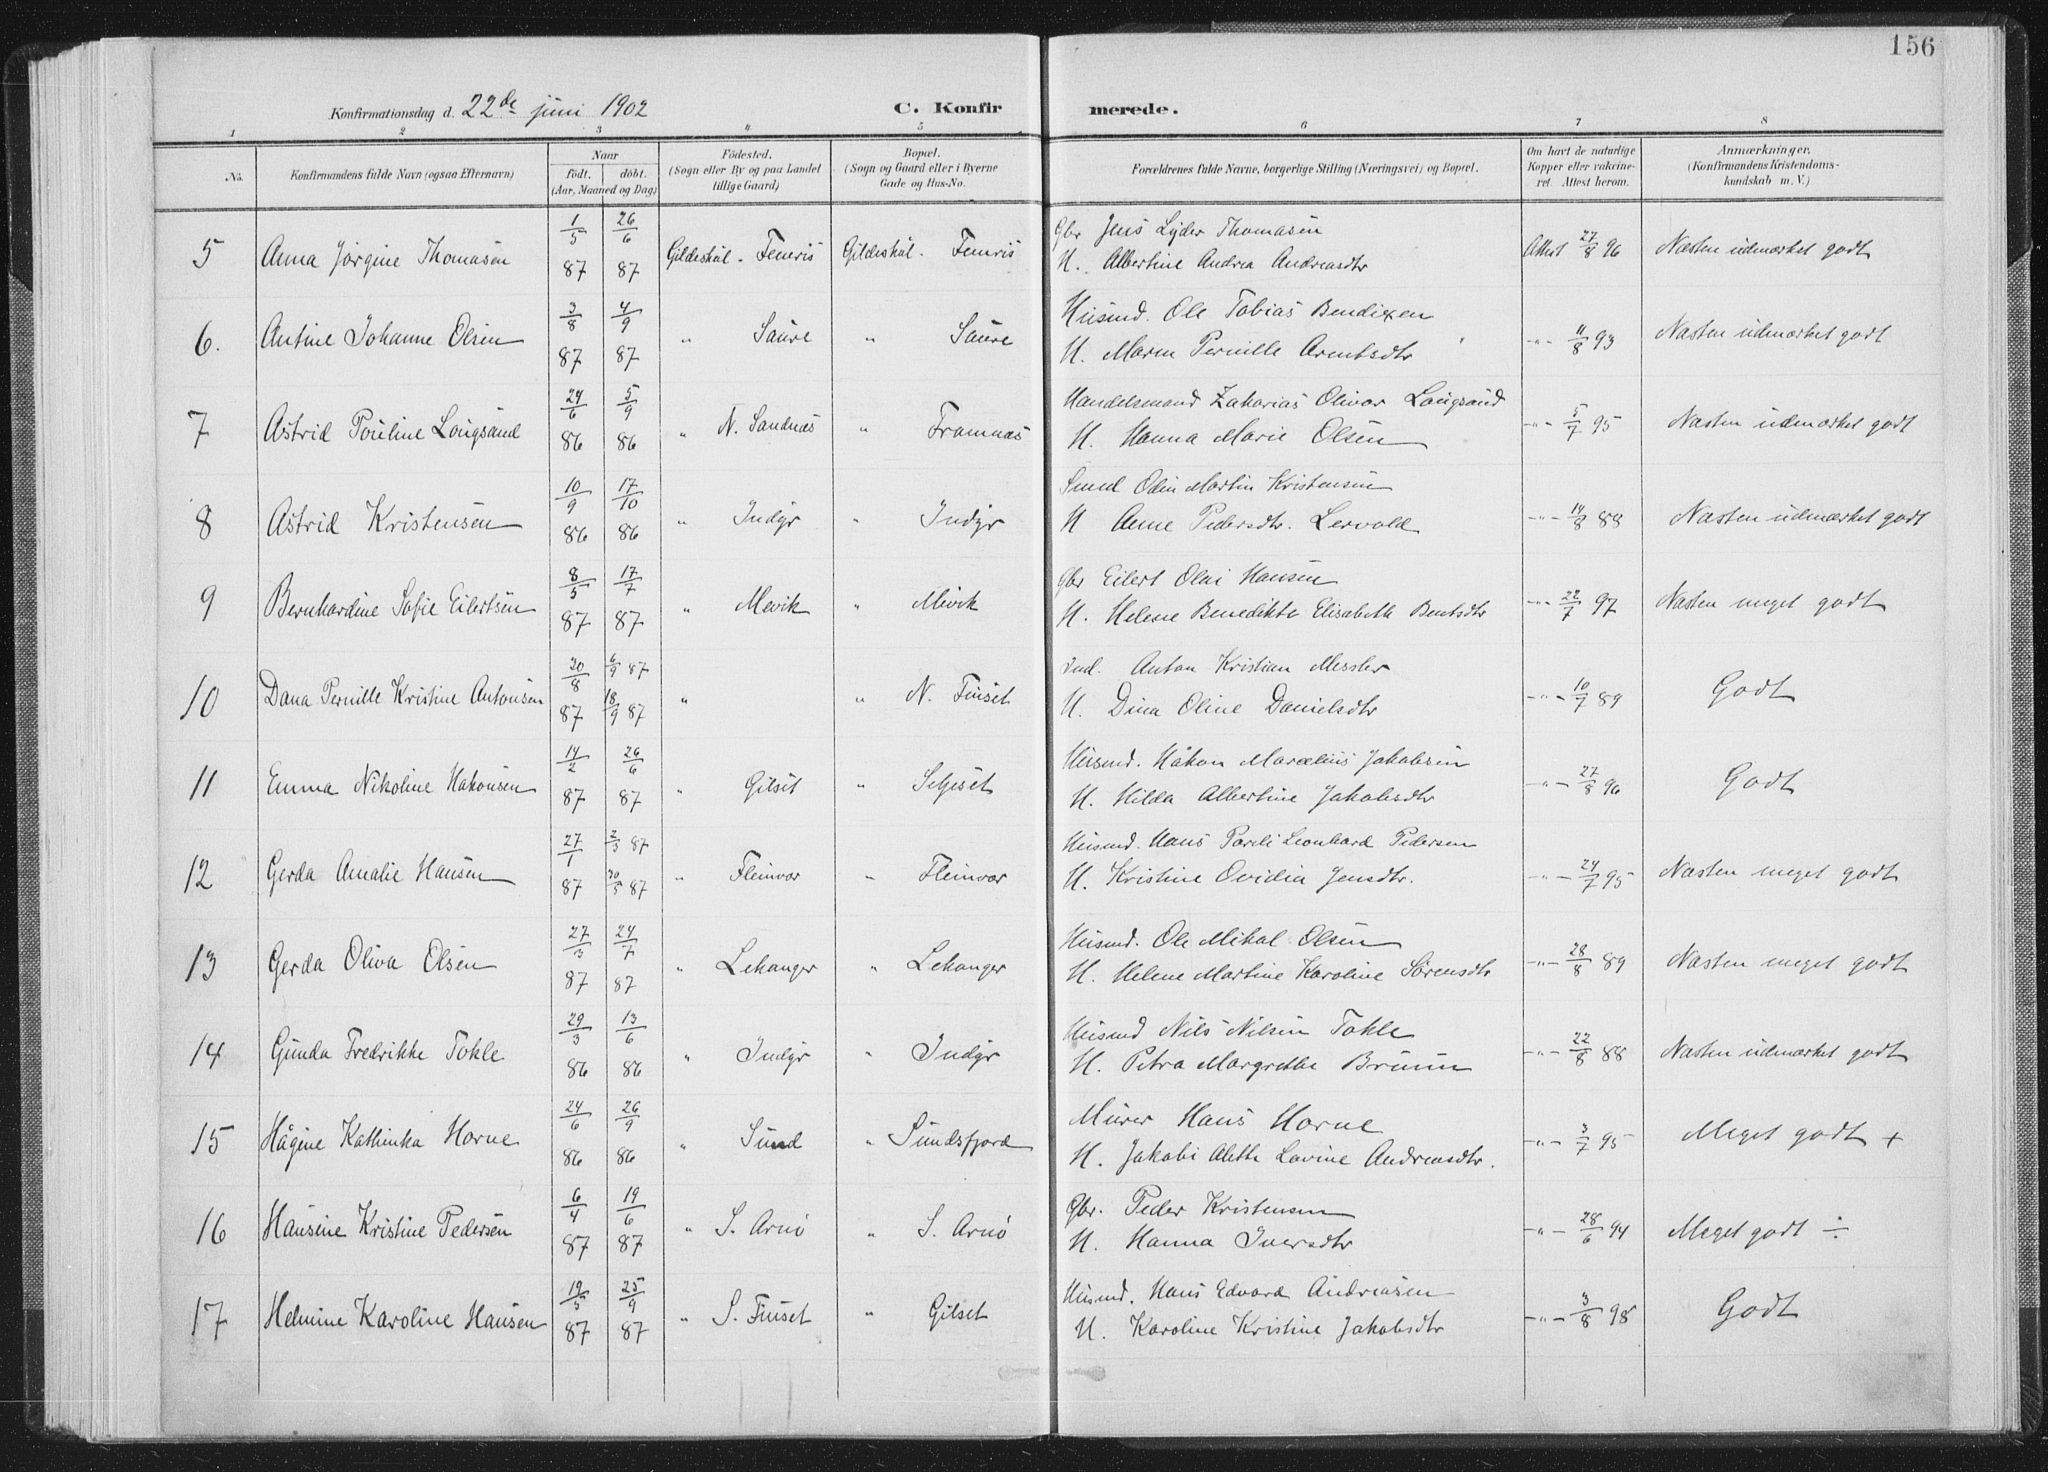 156
Konfirmationsdag d. 22de juni 1902 C. Konfirmerede.
1 2 3 4 5 6 7 8
No. Konfirmandens fulde Navn (ogsaa Efternavn) Naar født. døbt. (Aar, Maaned og Dag) Fødested. (Sogn eller By og paa Landet tillige Gaard) Bopæl. (Sogn og Gaard eller i Byerne Gade og Hus-No. Forældrenes fulde Navne, borgerlige Stilling (Næringsvei) og Bopæl. Om havt de naturlige Kopper eller vakcineret. Attest herom. Anmærkninger. (Konfirmandens Kristendomskundskab m. V.)
5 Anna Jørgine Thomasen 1/5 87 26/6 87 Gildeskål - Femris Gildeskål - Femris Gbr Jens Lyder Thomasen
H. Albertine Andrea Andreasdtr Attest 27/8 96 Næsten udmærket godt
6. Antine Johanne Olsen 3/8 87 4/9 87 " Saure " Saure Husmd. Ole Tobias Bendixen
H. Maren Pernille Arentsdtr -"- 11/8 93 Næsten udmærket godt
7 Astrid Pouline Langsand 24/6 86 5/9 86 " N. Sandnæs " Framnæs Handelsmand Zakarias Olivar Langsand
H. Hanna Marie Olsen -"- 5/7 95 Næsten udmærket godt
8 Astrid Kristensen 10/9 86 17/10 86 " Indyr " Indyr Smed Odin Martin Kristensen
H Anne Pedersdtr. Lervold -"- 14/8 88 Næsten udmærket godt
9 Bernhardine Sofie Eilertsen 8/5 87 17/7 87 " Mevik " Mevik Gbr Eilert Olai Hansen
H. Helene Benedikte Elisabeth Bentsdtr -"- 22/7 97 Næsten meget godt
10 Dana Pernille Kristine Antonsen 30/8 87 6/9 87 18/9 87 " " N. Finset Ind. Anton Kristian Messler
H. Dina Oline Danielsdtr -"- 10/7 89 Godt
11 Emma Nikoline Hakonsen 14/2 87 26/6 87 " Gilset " Seljeset Husmd. Håkon Marcelius Jakobsen
H. Hilda Albertine Jakobsdtr -"- 27/8 96 Godt
12 Gerda Amalie Hansen 27/1 87 2/3 87 30/5 87 " Fleinvær " Fleinvær Husmd. Hans Pareli Leonhard Pedersen
H. Kristine Ovidia Jensdtr. -"- 24/7 95 Næsten meget godt
13 Gerda Oliva Olsen 27/3 87 24/7 87 " Lekanger " Lekanger Husmd. Ole Mikal Olsen
H. Helene Martine Karoline Sørensdtr -"- 28/8 89 Næsten meget godt
14 Gunda Fredrikke Tokle 29/3 86 13/6 86 " Indyr " Indyr Husmd Nils Nilsen Tokle
H. Petra Margrethe Bruun -"- 22/8 88 Næsten udmærket godt
15 Hågine Kathinka Horne 24/6 86 26/9 86 " Sund " Sundsfjord Murer Hans Horne
H. Jakobi Alette Lovine Andreasdtr. -"- 3/7 95 Meget godt +
16 Hansine Kristine Pedersen 6/4 87 19/6 87 " S. Arnø " S. Arnø Gbr. Peder Kristensen
H. Hanna Iversdtr -"- 28/6 94 Meget godt ÷
17 Helmine Karoline Hansen 19/5 87 25/9 87 " S. Finset " Gilset Husmd. Hans Edvard Andreasen
H. Karoline Kristine Jakobsdtr -"- 3/8 98 Godt